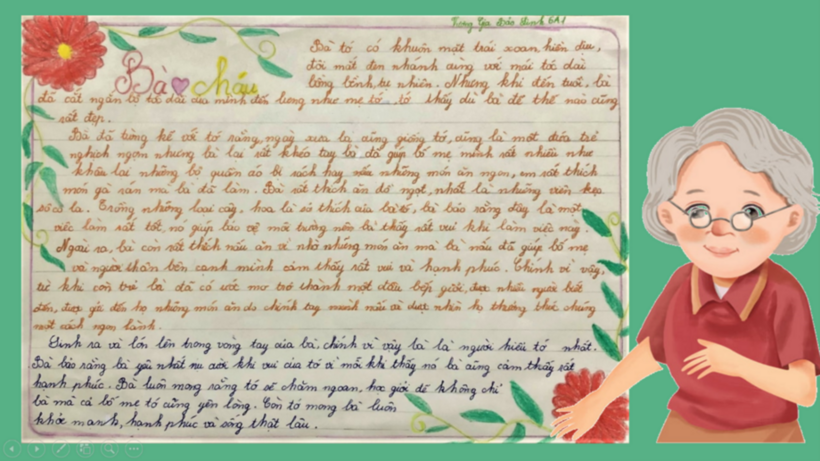 Tống Gia Bảo Linh 6A1
Bà cháu
Bà tớ có khuôn mặt trái xoan, hiền dịu,
đôi mắt đen nhánh cùng với mái tóc dài
bồng bềnh, tự nhiên. Nhưng khi đến tuổi, bà
đã cắt ngắn bộ tóc dài của mình đến lưng như mẹ tớ, tớ thấy dù bà để thế nào cũng
rất đẹp.
Bà đã từng kể với tớ rằng, ngày xưa bà cũng giống tớ, cũng là một đứa trẻ
nghịch ngợm nhưng bà lại rất khéo tay bà đã giúp bố mẹ mình rất nhiều như
khâu lại những bộ quần áo bị rách hay nấu những món ăn ngon, em rất thích
món gà rán mà bà đã làm. Bà rất thích ăn đồ ngọt, nhất là những viên kẹo
sô cô la. Trồng những loại cây, hoa là sở thích của bà tớ, bà bảo rằng đây là một
việc làm rất tốt, nó giúp bảo vệ môi trường nên bà thấy rất vui khi làm việc này.
Ngoài ra, bà còn rất thích nấu ăn vì nhờ những món ăn mà bà nấu đã giúp bố mẹ
và người thân bên cạnh mình cảm thấy rất vui và hạnh phúc. Chính vì vậy,
từ khi còn trẻ bà đã có ước mơ trở thành một đầu bếp giỏi, được nhiều người biết
đến, được gửi đến họ những món ăn do chính tay mình nấu và được nhìn họ thưởng thức chúng
một cách ngon lành.
Sinh ra và lớn lên trong vòng tay của bà, chính vì vậy bà là người hiểu tớ nhất.
Bà bảo rằng bà yêu nhất nụ cười khi vui của tớ vì mỗi khi thấy nó bà cũng cảm thấy rất
hạnh phúc. Bà luôn mong rằng tớ sẽ chăm ngoan, học giỏi để không chỉ
bà mà cả bố mẹ tớ cũng yên lòng. Còn tớ mong bà luôn
khỏe mạnh, hạnh phúc và sống thật lâu.